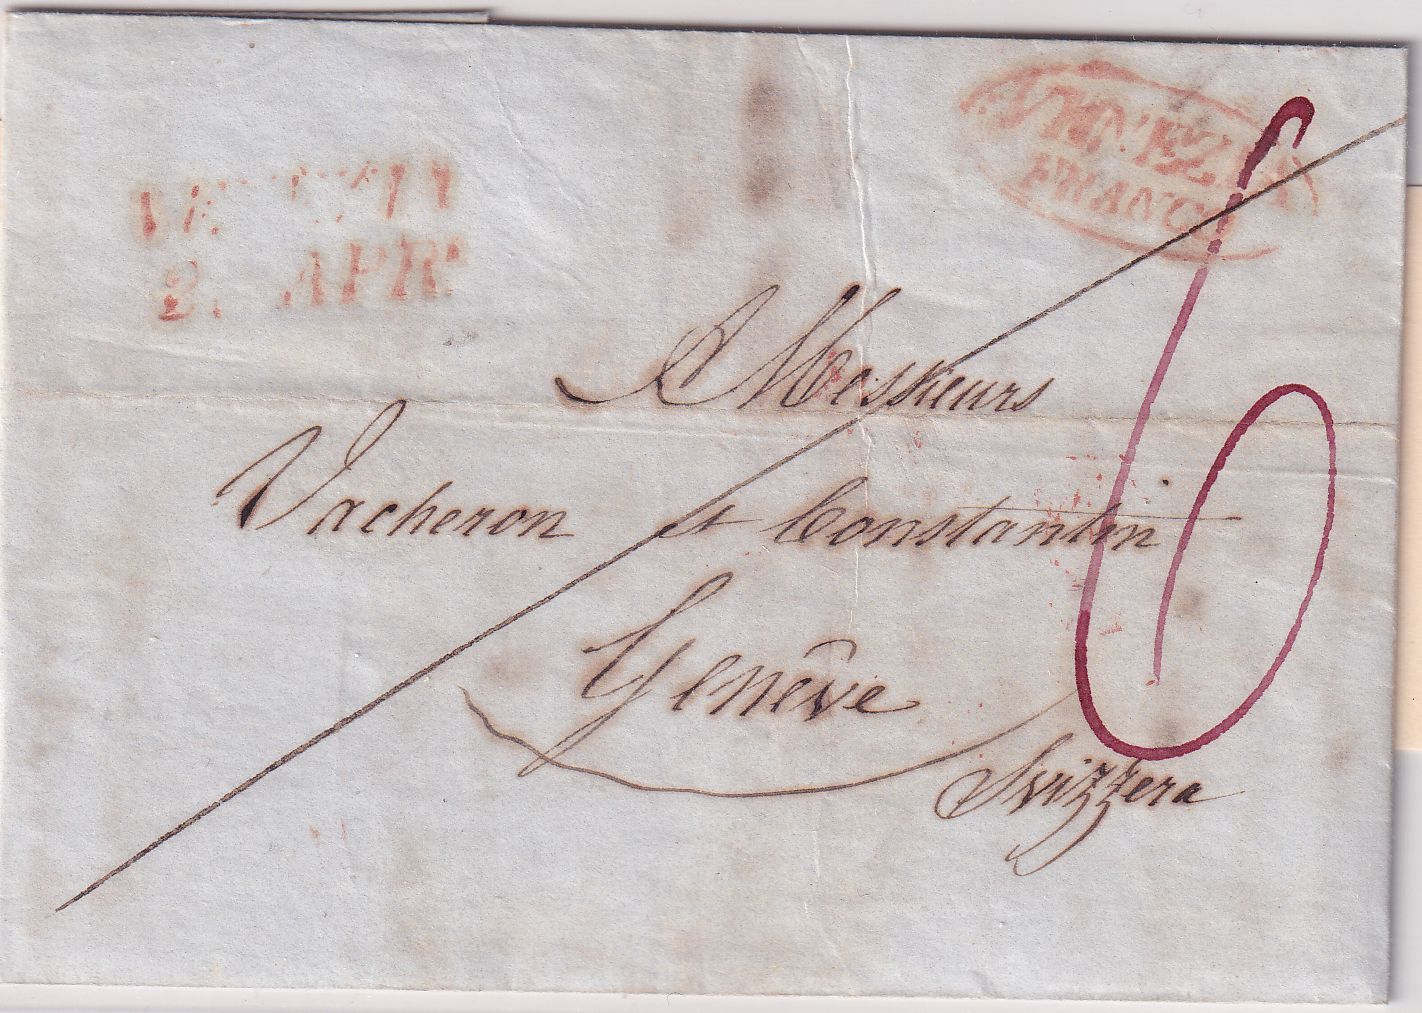 VENEZIA
2. APR
VENEZIA
FRANCA
A Messieurs
Vacheron et Constantin
Genêve
Svizzera
6